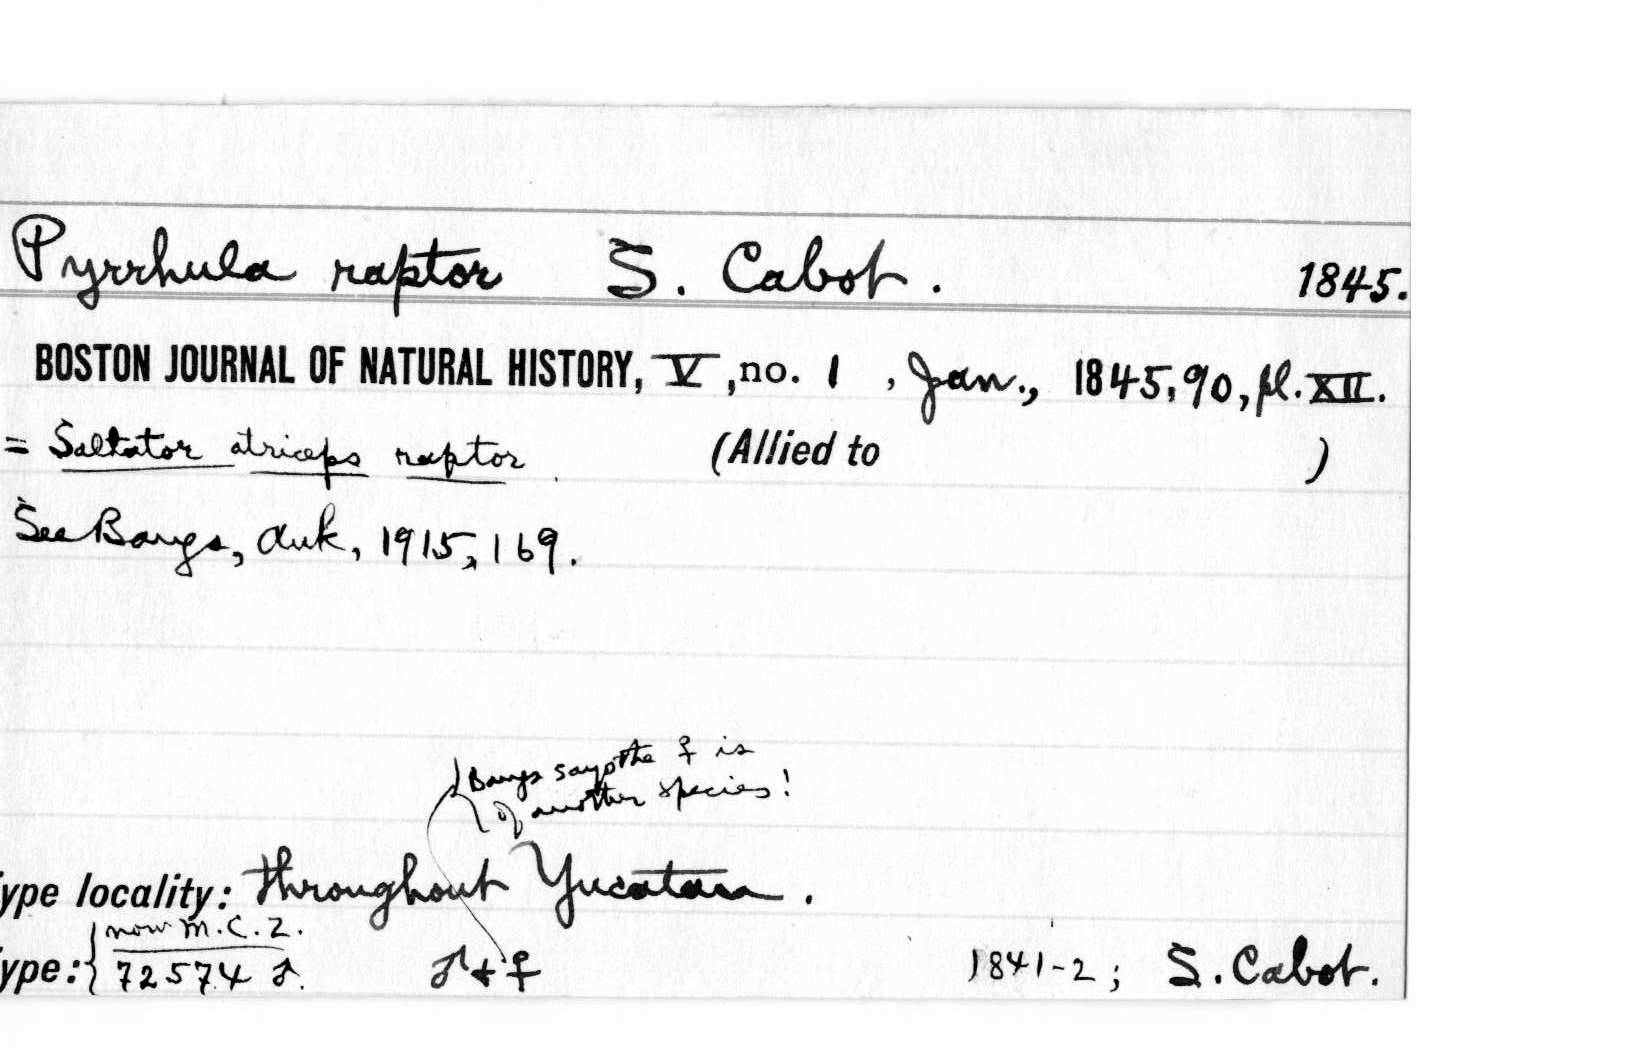 Pyrrhula raptor S. Cabot. 1845.
BOSTON JOURNAL OF NATURAL HISTORY, V, no. 1, Jan., 1845, 90, pl. XII.
= Saltator atriceps raptor (Allied to )
See Bangs, Auk, 1915, 169.
Bangs says the ♀ is
of another species!
ype locality: throughout Yucatan.
now M.C.Z.
ype: 72574 ♂. ♂ + ♀ 1841-2; S. Cabot.